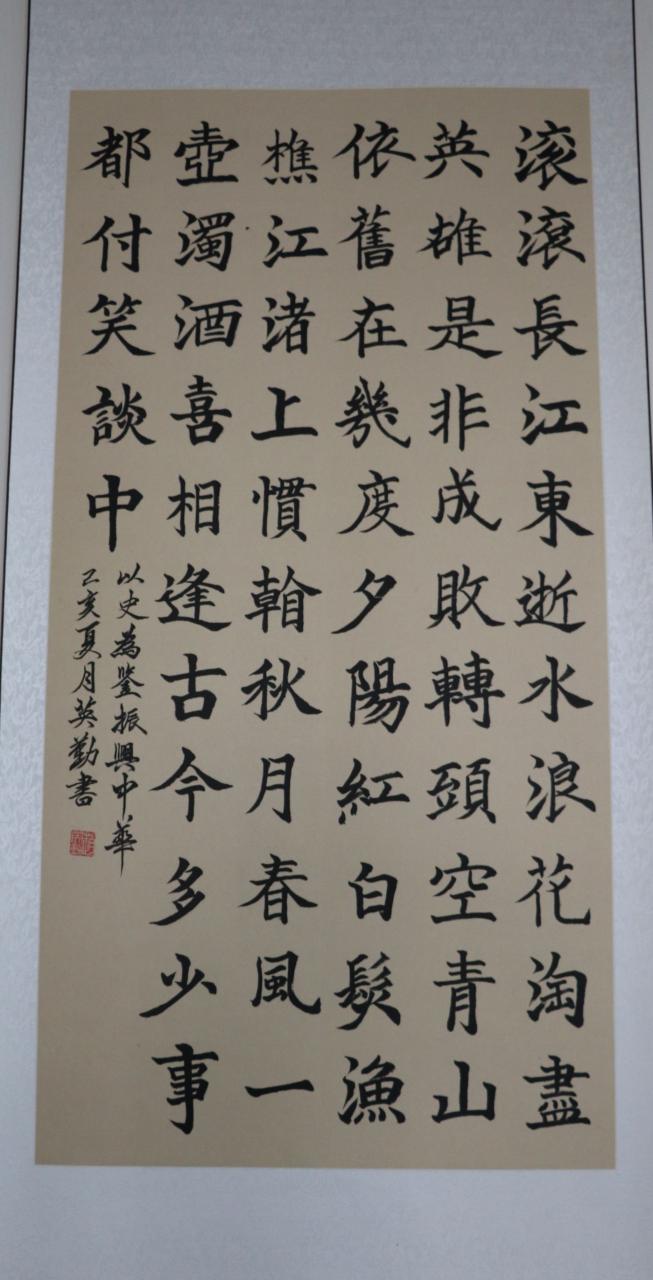 滚滾長江東逝水浪花淘盡
英雄是非成敗轉頭空青山
依舊在幾度夕陽紅白髮漁
樵江渚上慣看秋月春風一
壺濁酒喜相逢古今多少事
都付笑談中
以史為鑒振興中華
己亥夏月英勤書